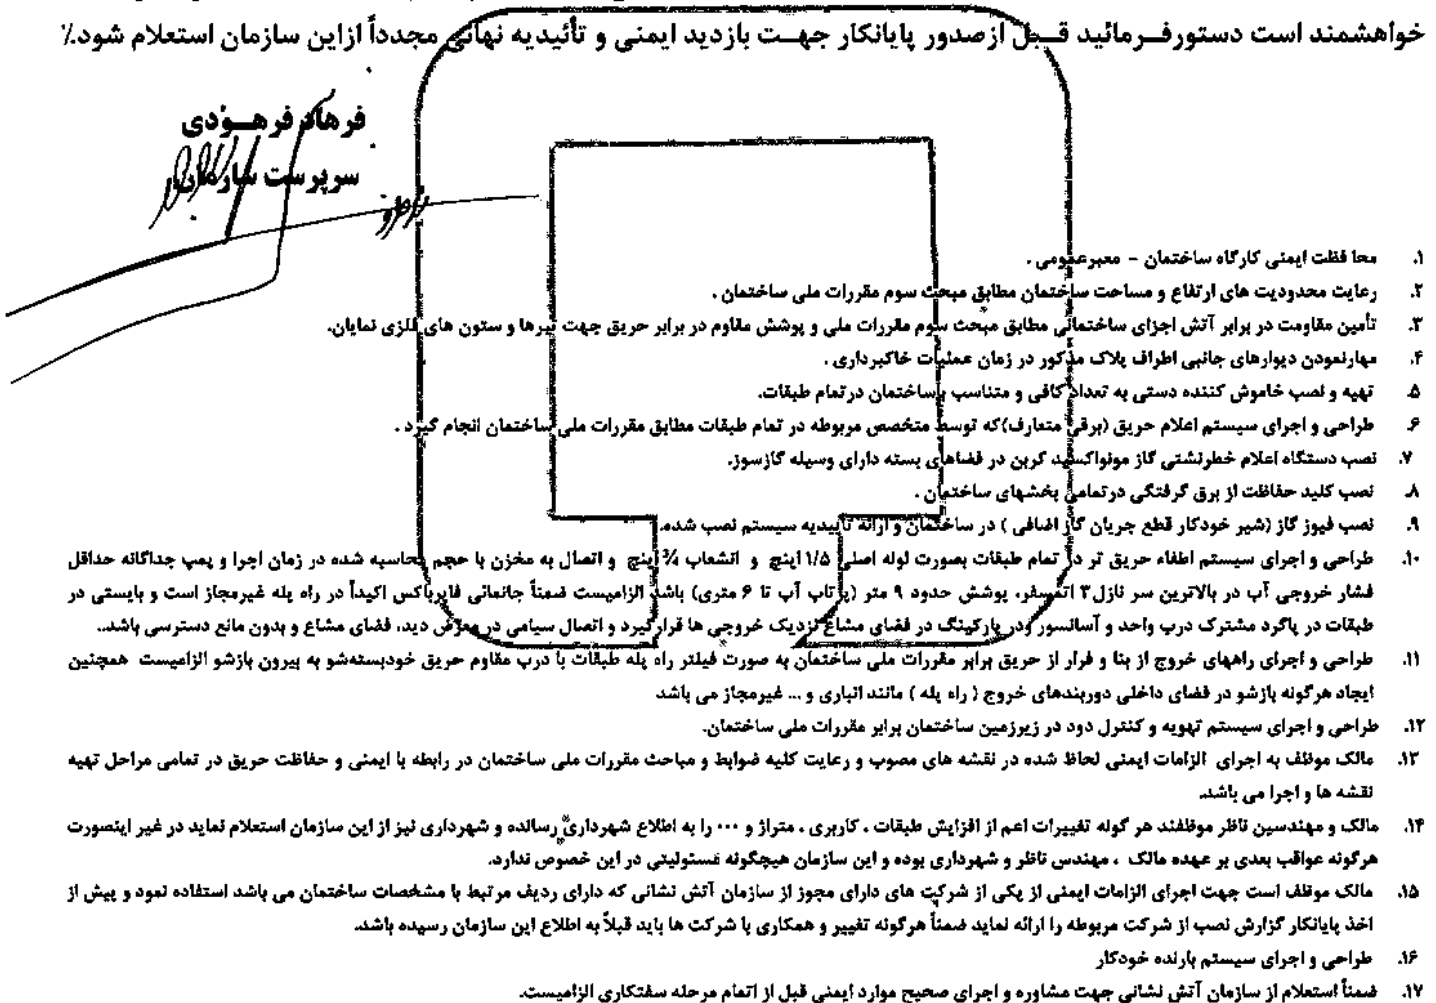 خواهشمند است دستورفـرمائید قـبل ازصدور پایانکار جهـت بازدید ایمنی و تأئیدیه نهائی مجدداً ازاین سازمان استعلام شود٪
فرهاد فرهـودی
سرپرست سازمان
۱. محا فظت ایمنی کارگاه ساختمان - معبرعمومی .
۲. رعایت محدودیت های ارتفاع و مساحت ساختمان مطابق مبحث سوم مقررات ملی ساختمان .
۳. تأمین مقاومت در برابر آتش اجزای ساختمانی مطابق مبحث سوم مقررات ملی و پوشش مقاوم در برابر حریق جهت تیرها و ستون های فلزی نمایان.
۴. مهارنمودن دیوارهای جانبی اطراف پلاک مذکور در زمان عملیات خاکبرداری .
۵. تهیه و نصب خاموش کننده دستی به تعداد کافی و متناسب باساختمان درتمام طبقات.
۶. طراحی و اجرای سیستم اعلام حریق (برقی متعارف)که توسط متخصص مربوطه در تمام طبقات مطابق مقررات ملی ساختمان انجام گیرد .
۷. نصب دستگاه اعلام خطرنشتی گاز مونواکسید کربن در فضاهای بسته دارای وسیله گازسوز.
۸. نصب کلید حفاظت از برق گرفتگی درتمامی بخشهای ساختمان .
۹. نصب فیوز گاز (شیر خودکار قطع جریان گاز اضافی ) در ساختمان و ارائه تاییدیه سیستم نصب شده.
۱۰. طراحی و اجرای سیستم اطفاء حریق تر در تمام طبقات بصورت لوله اصلی ۱/۵ اینچ و انشعاب ¾ اینچ و اتصال به مخزن با حجم محاسبه شده در زمان اجرا و پمپ جداگانه حداقل
فشار خروجی آب در بالاترین سر نازل ۳ اتمسفر، پوشش حدود ۹ متر (پرتاب آب تا ۶ متری) باشد الزامیست ضمناً جانمائی فایرباکس اکیداً در راه پله غیرمجاز است و بایستی در
طبقات در پاگرد مشترک درب واحد و آسانسور ودر پارکینگ در فضای مشاع نزدیک خروجی ها قرارگیرد و اتصال سیامی در معرض دید، فضای مشاع و بدون مانع دسترسی باشد..
۱۱. طراحی و اجرای راههای خروج از بنا و فرار از حریق برابر مقررات ملی ساختمان به صورت فیلتر راه پله طبقات با درب مقاوم حریق خودبسته‌شو به بیرون بازشو الزامیست همچنین
ایجاد هرگونه بازشو در فضای داخلی دوربندهای خروج ( راه پله ) مانند انباری و ... غیرمجاز می باشد
۱۲. طراحی و اجرای سیستم تهویه و کنترل دود در زیرزمین ساختمان برابر مقررات ملی ساختمان.
۱۳. مالک موظف به اجرای الزامات ایمنی لحاظ شده در نقشه های مصوب و رعایت کلیه ضوابط و مباحث مقررات ملی ساختمان در رابطه با ایمنی و حفاظت حریق در تمامی مراحل تهیه
نقشه ها و اجرا می باشد.
۱۴. مالک و مهندسین ناظر موظفند هر گونه تغییرات اعم از افزایش طبقات ، کاربری ، متراژ و ۰۰۰ را به اطلاع شهرداری رسانده و شهرداری نیز از این سازمان استعلام نماید در غیر اینصورت
هرگونه عواقب بعدی بر عهده مالک ، مهندس ناظر و شهرداری بوده و این سازمان هیچگونه مسئولیتی در این خصوص ندارد.
۱۵. مالک موظف است جهت اجرای الزامات ایمنی از یکی از شرکت های دارای مجوز از سازمان آتش نشانی که دارای ردیف مرتبط با مشخصات ساختمان می باشد استفاده نمود و پیش از
اخذ پایانکار گزارش نصب از شرکت مربوطه را ارائه نماید ضمناً هرگونه تغییر و همکاری با شرکت ها باید قبلاً به اطلاع این سازمان رسیده باشد.
۱۶. طراحی و اجرای سیستم بارنده خودکار
۱۷. ضمناً استعلام از سازمان آتش نشانی جهت مشاوره و اجرای صحیح موارد ایمنی قبل از اتمام مرحله سفتکاری الزامیست.